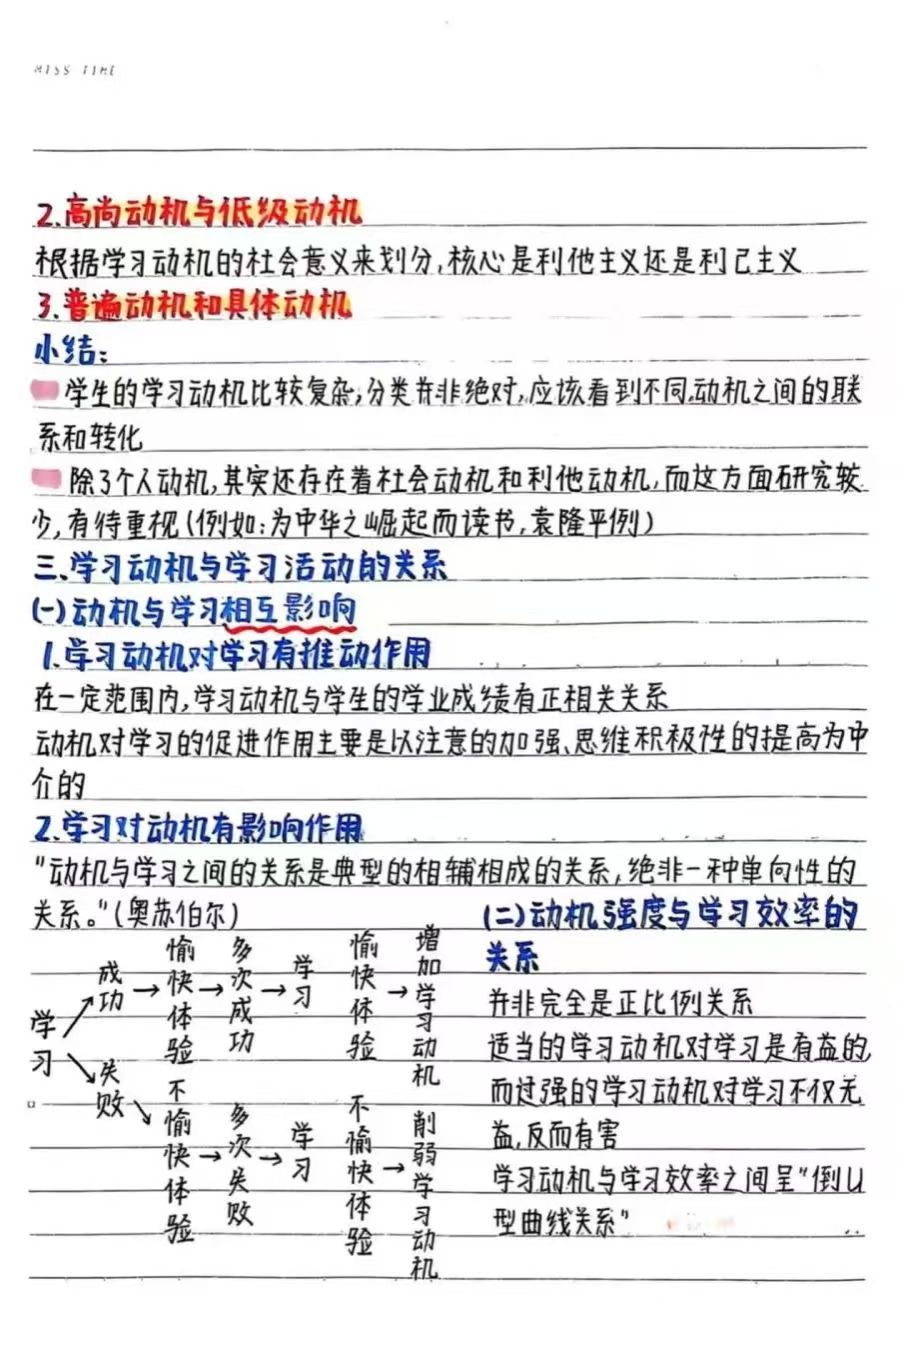 MISS TIME
2.高尚动机与低级动机
根据学习动机的社会意义来划分,核心是利他主义还是利己主义
3.普遍动机和具体动机
小结:
学生的学习动机比较复杂,分类并非绝对,应该看到不同动机之间的联
系和转化
除3个人动机,其实还存在着社会动机和利他动机,而这方面研究较
少,有待重视(例如:为中华之崛起而读书,袁隆平例)
三、学习动机与学习活动的关系
(一)动机与学习相互影响
1.学习动机对学习有推动作用
在一定范围内,学习动机与学生的学业成绩有正相关关系
动机对学习的促进作用主要是以注意的加强、思维积极性的提高为中
介的
2.学习对动机有影响作用
"动机与学习之间的关系是典型的相辅相成的关系,绝非一种单向性的
关系。"(奥苏伯尔)
学习
成功→愉快体验→多次成功→学习 愉快体验→增加学习动机
失败 不愉快体验→多次失败→学习 不愉快体验→削弱学习动机
(二)动机强度与学习效率的
关系
并非完全是正比例关系
适当的学习动机对学习是有益的,
而过强的学习动机对学习不仅无
益,反而有害
学习动机与学习效率之间呈"倒U
型曲线关系"